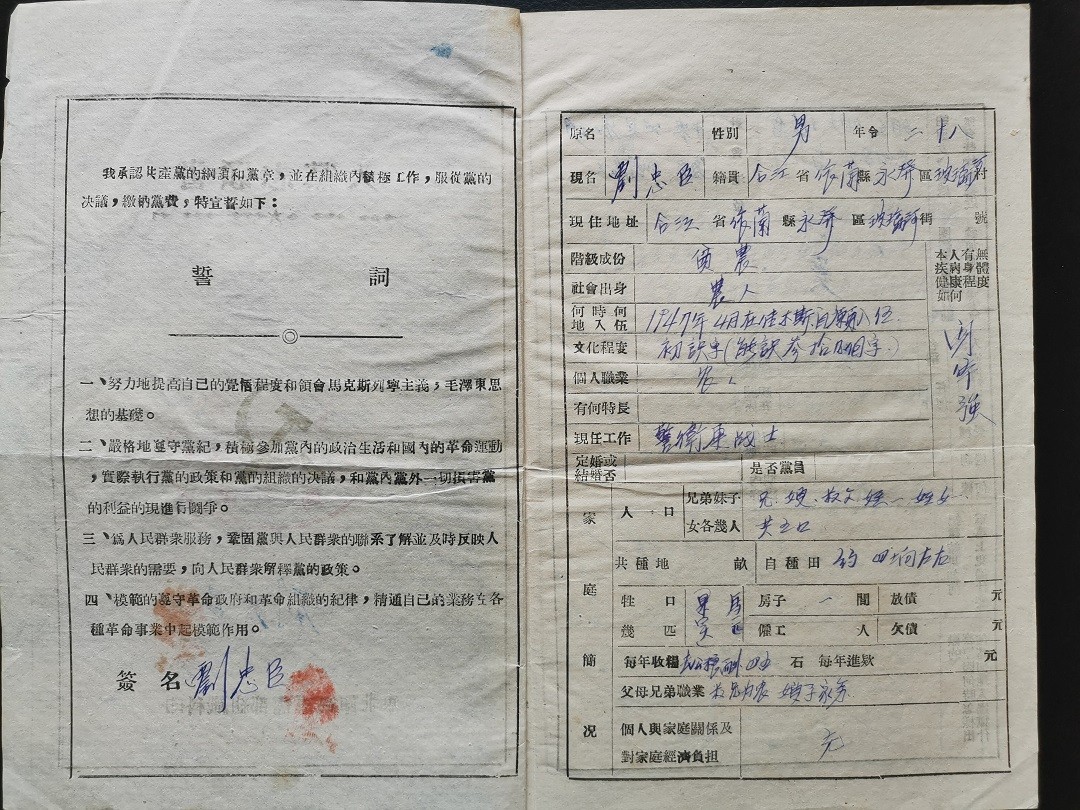 我承認共產黨的綱領和黨章，並在組織內積極工作，服從黨的
决議，繳納黨費，特宣誓如下：
誓 詞
一、努力地提高自己的覺悟程度和領會馬克斯列寧主義，毛澤東思
想的基礎。
二、嚴格地遵守黨紀，積極參加黨內的政治生活和國內的革命運動
，實際執行黨的政策和黨的組織的决議，和黨內黨外一切損害黨
的利益的現進行鬪爭。
三、爲人民群衆服務，鞏固黨與人民群衆的聯系了解並及時反映人
民群衆的需要，向人民群衆解釋黨的政策。
四、模範的遵守革命政府和革命組織的紀律，精通自己的業務在各
種革命事業中起模範作用。
簽名 劉忠臣
原名 性別 男 年令 二十八
現名 劉忠臣 籍貫 合江省依蘭縣永 區 村
現住地址 合江省依蘭縣永 區 街 號
階級成份 貧農
社會出身 農人
何時何地入伍 1947年4月在佳木斯自願入伍
文化程度 初識字(能識 拾 個字)
個人職業 农人
有何特長
現任工作 警衛連战士
定婚或結婚否 是否黨員
本人有無疾病身體健康程度如何
家庭簡况
人口 兄弟妹子女各幾人 兄 嫂
共 口
共種地 畝 自種田 約四垧左右
牲口幾匹 房子 一 間 放債 元
僱工 人 欠債 元
每年收糧 石 每年進欵 元
父母兄弟職業
個人與家庭關係及對家庭經濟負担 无